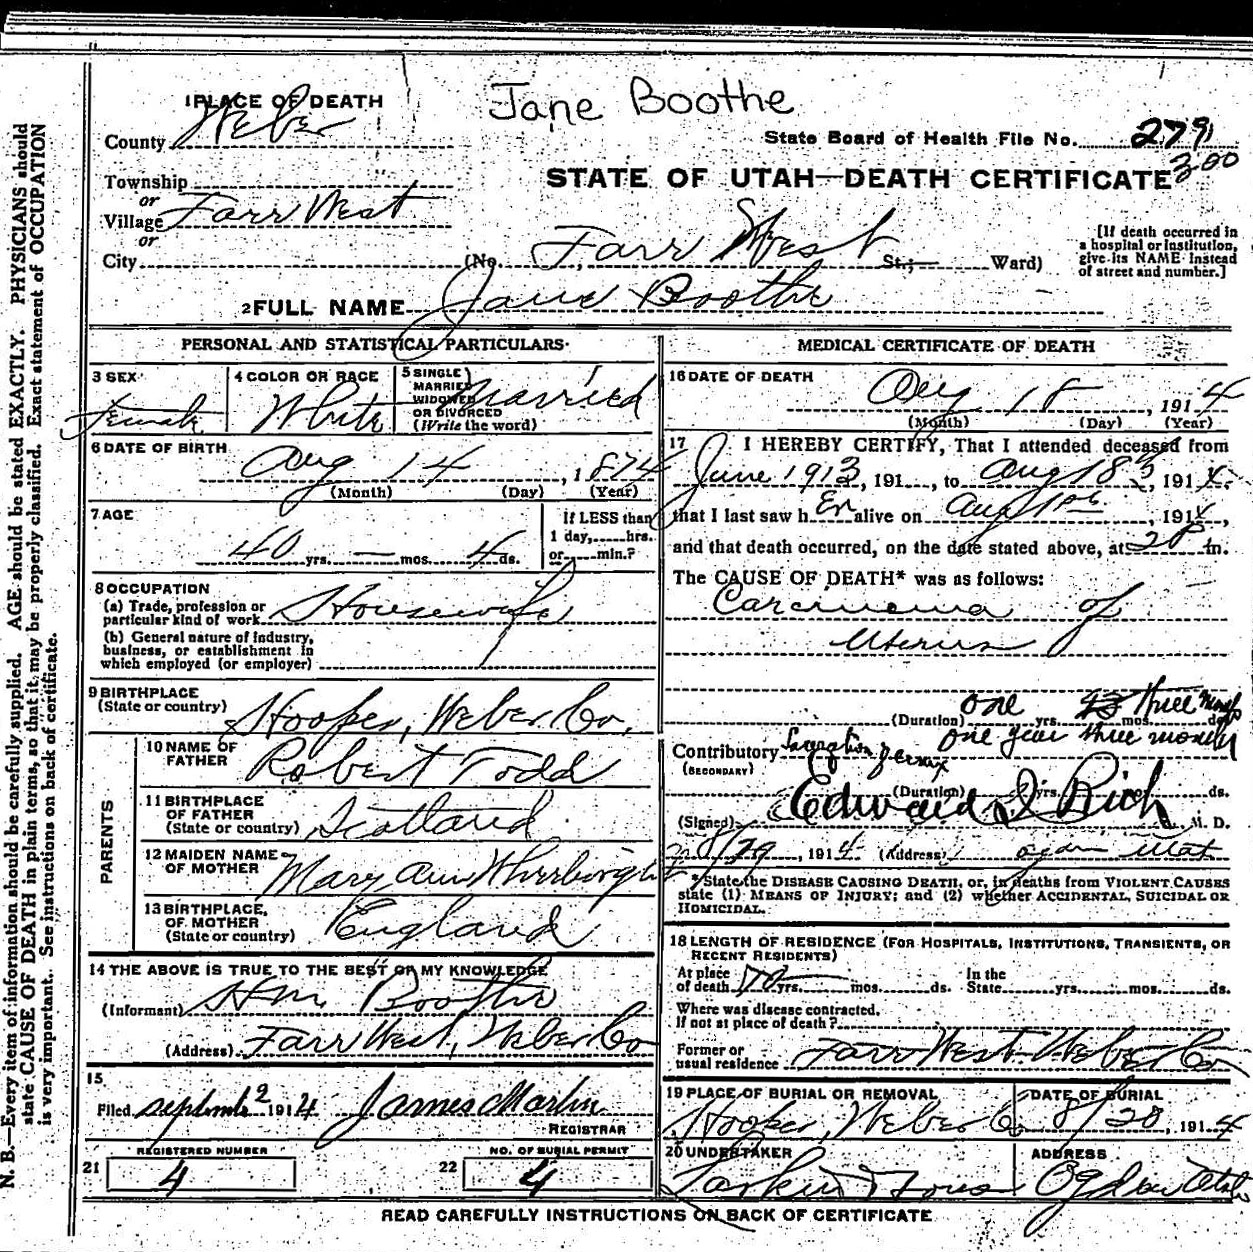 Jane Boothe
1 PLACE OF DEATH
County Weber
State Board of Health File No. 279
300
STATE OF UTAH—DEATH CERTIFICATE
Township
or
Village Farr West
or
City (No. Farr West St.; Ward)
[If death occurred in
a hospital or institution,
give its NAME instead
of street and number.]
2 FULL NAME Jane Boothe
PERSONAL AND STATISTICAL PARTICULARS
3 SEX Female
4 COLOR OR RACE White
5 SINGLE
MARRIED
WIDOWED
OR DIVORCED
(Write the word)
Married
6 DATE OF BIRTH
Aug 14, 1874
(Month) (Day) (Year)
7 AGE
40 yrs. — mos. 4 ds.
If LESS than
1 day, hrs.
or min.?
8 OCCUPATION
(a) Trade, profession or
particular kind of work Housewife
(b) General nature of industry,
business, or establishment in
which employed (or employer)
9 BIRTHPLACE
(State or country) Hooper, Weber Co.
PARENTS
10 NAME OF
FATHER Robert Todd
11 BIRTHPLACE
OF FATHER
(State or country) Scotland
12 MAIDEN NAME
OF MOTHER Mary Ann
13 BIRTHPLACE
OF MOTHER
(State or country) England
14 THE ABOVE IS TRUE TO THE BEST OF MY KNOWLEDGE
(Informant) H m Boothe
(Address) Farr West, Weber Co
15
Filed september 2 1914 James Martin
REGISTRAR
REGISTERED NUMBER
21 4
NO. OF BURIAL PERMIT
22 4
MEDICAL CERTIFICATE OF DEATH
16 DATE OF DEATH
Aug 18, 1914
(Month) (Day) (Year)
17 I HEREBY CERTIFY, That I attended deceased from
June 1913, 191 , to Aug 18, 1914.
that I last saw h er alive on Aug, 1914,
and that death occurred, on the date stated above, at m.
The CAUSE OF DEATH* was as follows:
Carcinoma of
Uterus
(Duration) one yrs. three mos. ds.
one year three months
Contributory Laceration of cervix
(SECONDARY)
(Duration) yrs. mos. ds.
(Signed) Edward I Rich M. D.
8/29, 1914 (Address) Ogden Utah
*State the DISEASE CAUSING DEATH, or, in deaths from VIOLENT CAUSES
state (1) MEANS OF INJURY; and (2) whether ACCIDENTAL, SUICIDAL OR
HOMICIDAL.
18 LENGTH OF RESIDENCE (FOR HOSPITALS, INSTITUTIONS, TRANSIENTS, OR
RECENT RESIDENTS)
At place
of death yrs. mos. ds.
In the
State yrs. mos. ds.
Where was disease contracted,
if not at place of death?
Former or
usual residence Farr West Weber Co
19 PLACE OF BURIAL OR REMOVAL
Hooper, Weber Co
DATE OF BURIAL
8/20, 1914
20 UNDERTAKER
Larkin & Sons
ADDRESS
Ogden Utah
READ CAREFULLY INSTRUCTIONS ON BACK OF CERTIFICATE
N. B.—Every item of information should be carefully supplied. AGE should be stated EXACTLY. PHYSICIANS should
state CAUSE OF DEATH in plain terms, so that it may be properly classified. Exact statement of OCCUPATION
is very important. See instructions on back of certificate.